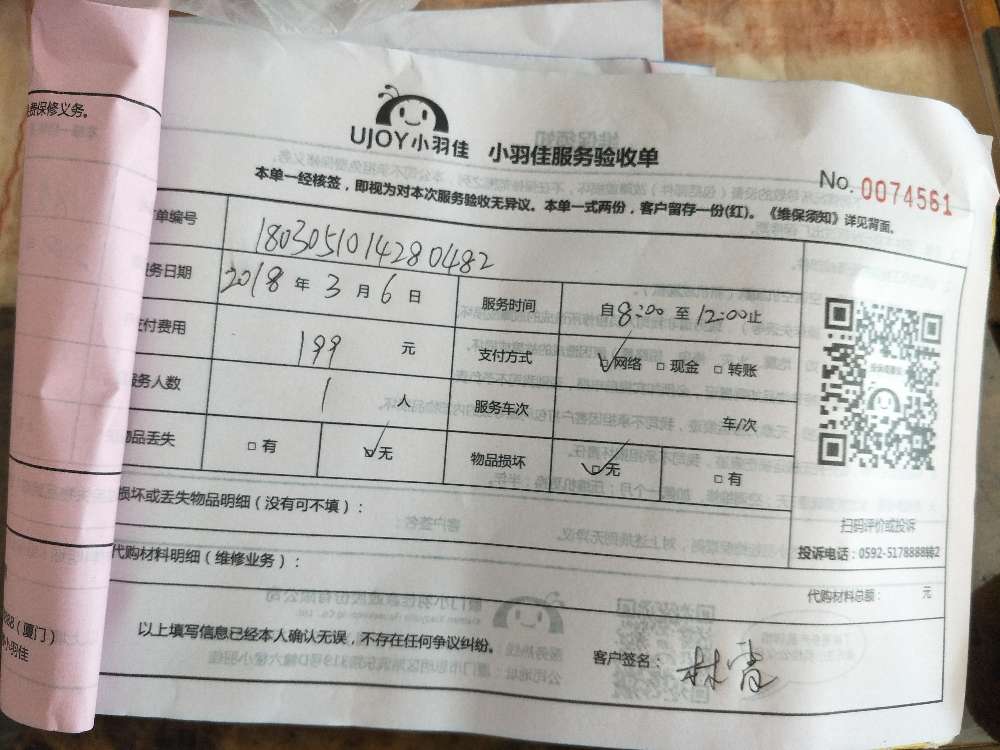 费保修义务。
UJOY小羽佳 小羽佳服务验收单
No. 0074561
本单一经核签，即视为对本次服务验收无异议。本单一式两份，客户留存一份(红)。《维保须知》详见背面。
单编号 1803051014280482
务日期 2018 年 3 月 6 日 服务时间 自8:00 至 12:00止
支付费用 199 元 支付方式 ☑网络 □ 现金 □ 转账
服务人数 1 人 服务车次 车/次
物品丢失 □ 有 ☑无 物品损坏 ☑无 □ 有
损坏或丢失物品明细（没有可不填）：
扫码评价或投诉
投诉电话：0592-5178888转2
代购材料明细（维修业务）：
代购材料总额： 元
以上填写信息已经本人确认无误，不存在任何争议纠纷。
客户签名：
888（厦门）
小羽佳